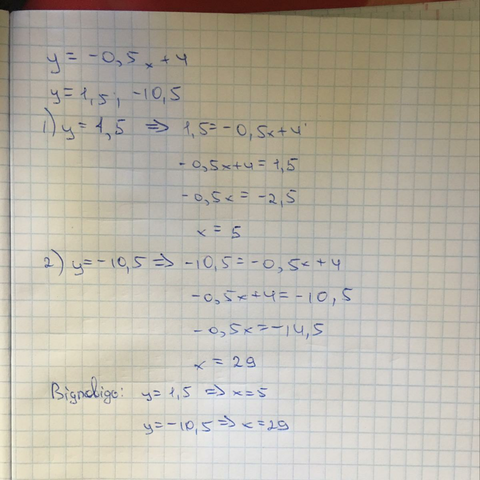 y = -0,5x + 4
y = 1,5; -10,5
1) y = 1,5 => 1,5 = -0,5x + 4
-0,5x + 4 = 1,5
-0,5x = -2,5
x = 5
2) y = -10,5 => -10,5 = -0,5x + 4
-0,5x + 4 = -10,5
-0,5x = -14,5
x = 29
Відповідь: y = 1,5 => x = 5
y = -10,5 => x = 29